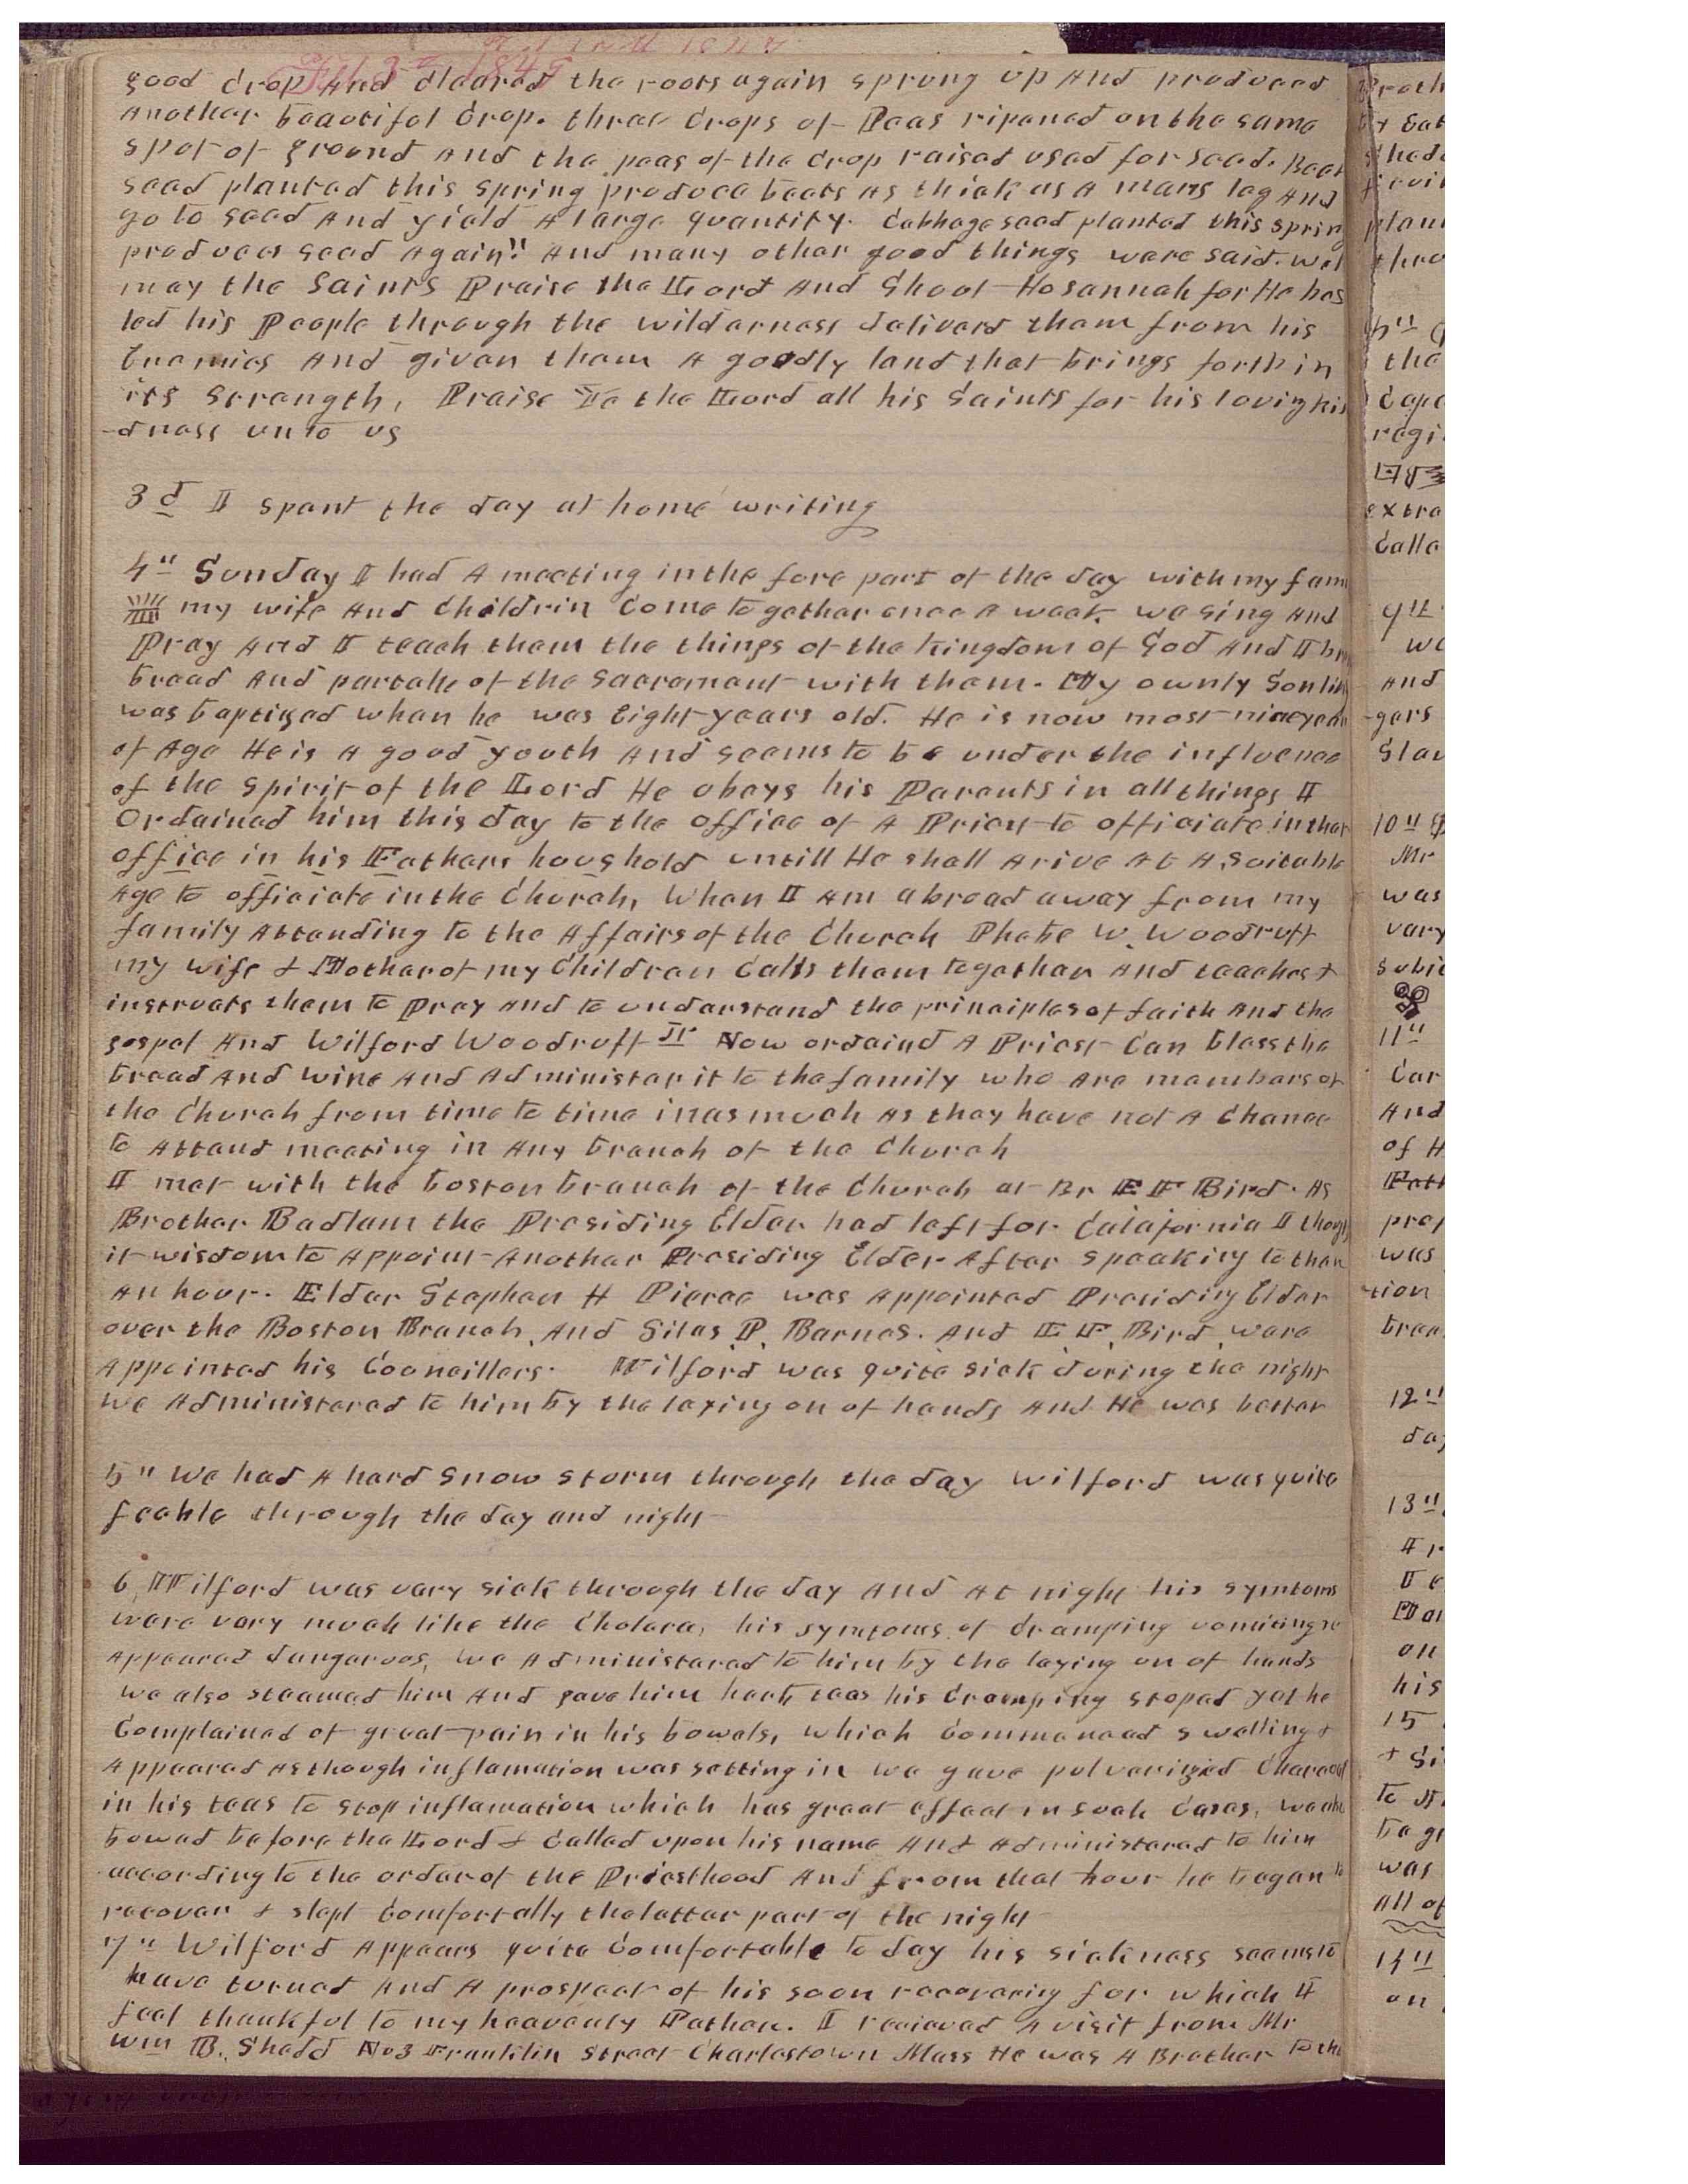 Feb 3d 1849
good crop And cleared the roots again sprung up And produced
Another beautiful crop. three crops of Peas ripened on the same
spot of ground And the peas of the crop raised used for seed. Beet
seed planted this spring produce beets as thick as A mans leg And
go to seed And yield A large quantity. Cabbage seed planted this spring
produces seed Again" And many other good things were said. well
may the Saints Praise the Lord And Shout Hosannah for He has
led his People through the wilderness deliverd them from his
Enemies And given them A goodly land that brings forth in
its strength, Praise Ye the Lord all his Saints for his loving kin
-dness unto us
3d I spent the day at home writing
4" Sunday I had A meeting in the fore part of the day with my fam
my wife And Childrin Come together once A week. we sing And
Pray And I teach them the things of the kingdom of God And I
bread And partake of the Sacrament with them. My ownly Son
was baptized when he was Eight years old. He is now most nine years
of Age He is A good youth And seems to be under the influence
of the spirit of the Lord He obeys his Parents in all things I
Ordained him this day to the office of A Priest to officiate in that
office in his Fathers houshold untill He shall Arive At A suitable
Age to officiate in the Church, When I Am abroad away from my
family Attending to the Affairs of the Church Phebe W. Woodruff
my wife & Mother of my Children Calls them together And teaches &
instructs them to Pray And to understand the principles of faith And the
gospel And Wilford Woodruff Jr Now ordaind A Priest Can bless the
bread And wine And Administer it to the family who Are members of
the Church from time to time inasmuch As they have not A Chance
to Attend meeting in Any branch of the Church
I met with the boston branch of the Church at Br E F Bird. As
Brother Badlam the Presiding Elder had left for Calafornia I thought
it wisdom to Appoint Another Presiding Elder After speaking to them
An hour. Elder Stephen H Pierce was Appointed Presiding Elder
over the Boston Branch. And Silas P. Barnes. And E F. Bird were
Appointed his Councillers. Wilford was quite sick during the night
we Administered to him by the laying on of hands And He was better
5" We had A hard snow storm through the day Wilford was quite
feeble through the day and night
6 Wilford was vary sick through the day And At night his symtoms
were vary much like the Cholera, his symtoms of cramping vomiting
Appeared dangerous, we Administered to him by the laying on of hands
we also steamed him And gave him herb teas his Cramping stoped yet he
Complained of great pain in his bowels, which Commenced swelling &
Appeared As though inflamation was setting in we gave pulverized Charcoal
in his teas to stop inflamation which has great effect in such Cases, we
bowed before the Lord & Called upon his name And Administered to him
according to the order of the Priesthood And from that hour he began to
recover & slept Comfortally the latter part of the night
7" Wilford Appears quite Comfortable to day his sickness seems to
have turned And A prospect of his soon recovering for which I
feel thankful to my heavenly Father. I recieved A visit from Mr
Wm B. Shedd No 3 Franklin Street Charlestown Mass He was A Brother to the